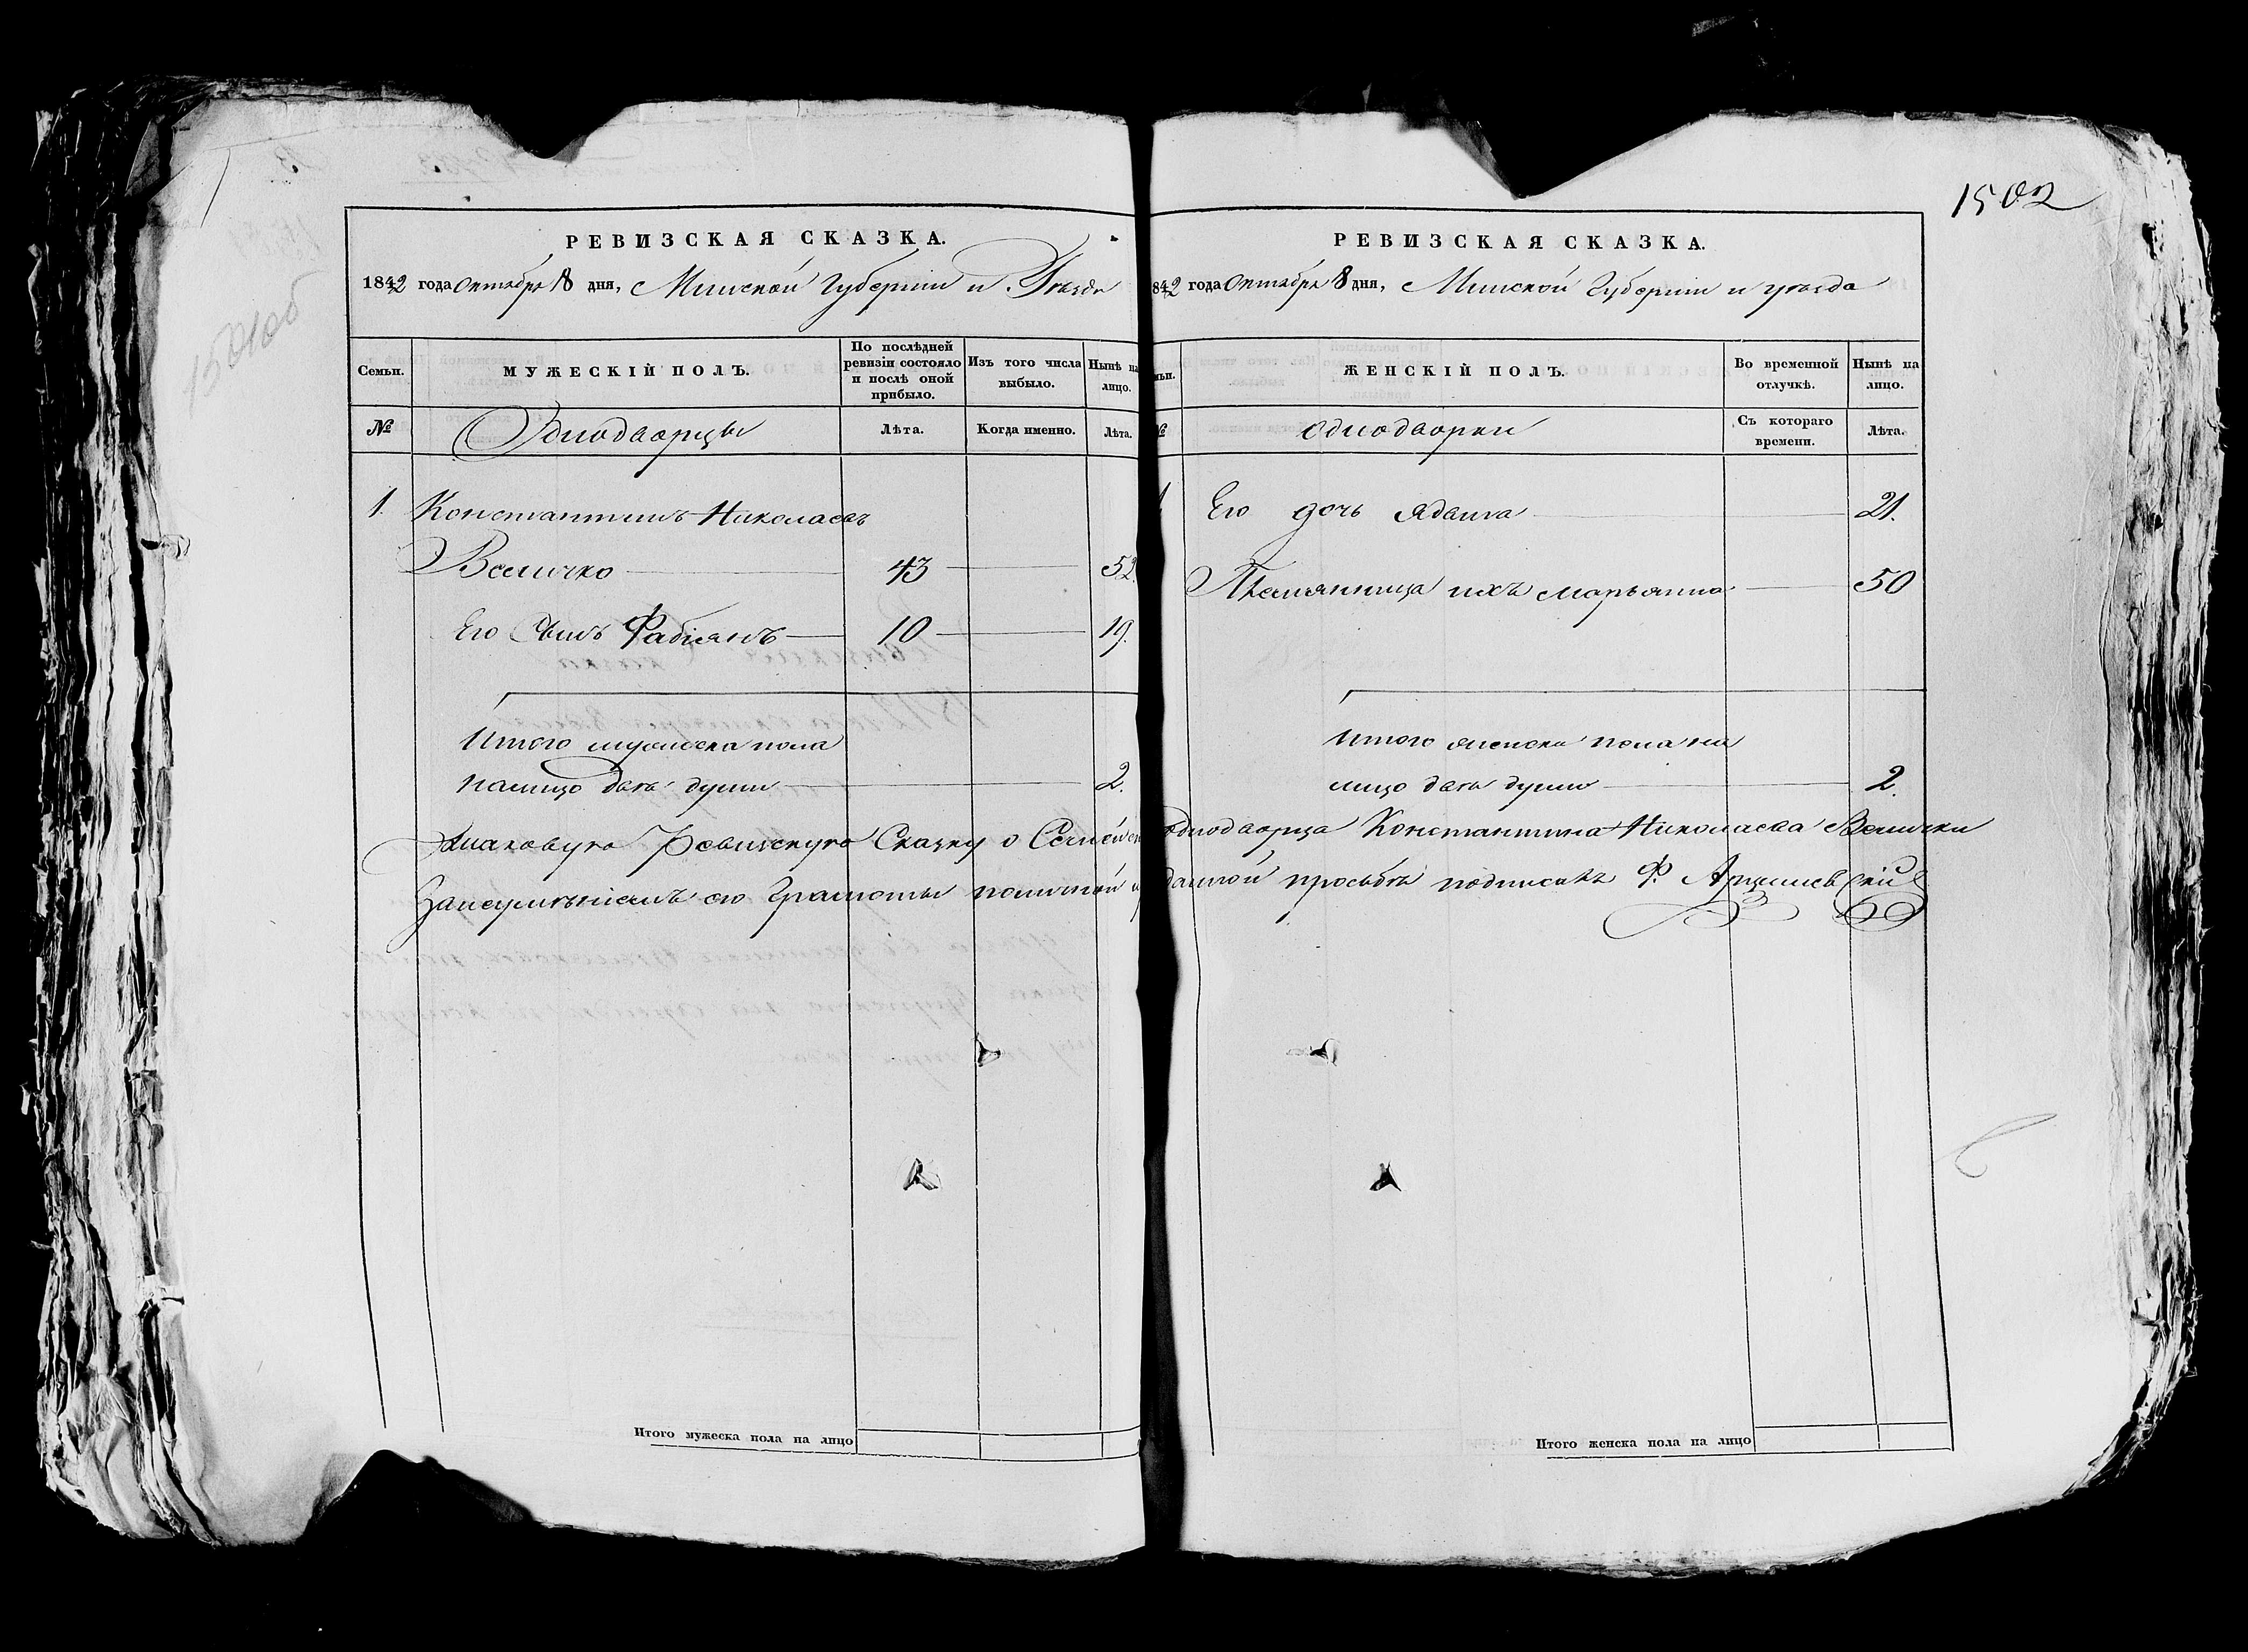 1502
РЕВИЗСКАЯ СКАЗКА.
1842 года Октября 8 дня, Минской Губернии и Уезда
Семьи.
МУЖЕСКІЙ ПОЛЪ.
По послѣдней ревизіи состояло и послѣ оной прибыло.
Изъ того числа выбыло.
Нынѣ на лицо.
№
Однодворцы
Лѣта.
Когда именно.
Лѣта.
1. Константинъ Николаевъ
Величко 43 52.
Его Сынъ Фабіянъ 10 19.
Итого мужеска пола
налицо двѣ души 2.
РЕВИЗСКАЯ СКАЗКА.
842 года Октября 8 дня, Минской Губерніи и уѣзда
ЖЕНСКІЙ ПОЛЪ.
Во временной отлучкѣ.
Нынѣ на лицо.
однодворки
Съ котораго времени.
Лѣта.
Его дочь Ядвига 21.
Племянница ихъ Марьянна 50
Итого женска пола на
лицо двѣ души 2.
Таковую Ревискую Сказку о Семействѣ однодворца Константина Николаева Велички
Занеумѣніемъ его Грамоты поличной и данной просьбѣ подписалъ Ф.
Итого мужеска пола на лицо
Итого женска пола на лицо